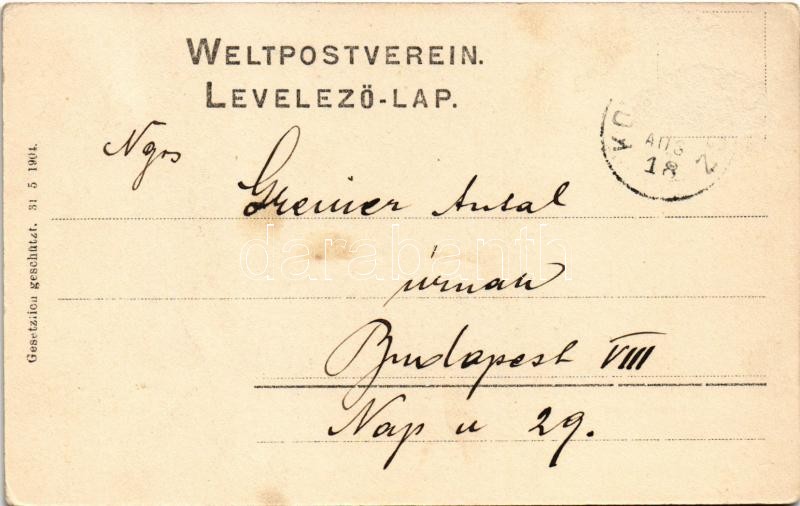 WELTPOSTVEREIN.
LEVELEZŐ-LAP.
Ngos
Greiner Antal
úrnak
Budapest VIII
Nap u 29.
Gesetzlich geschützt. 31 5 1904.
AUG
18
darabanth